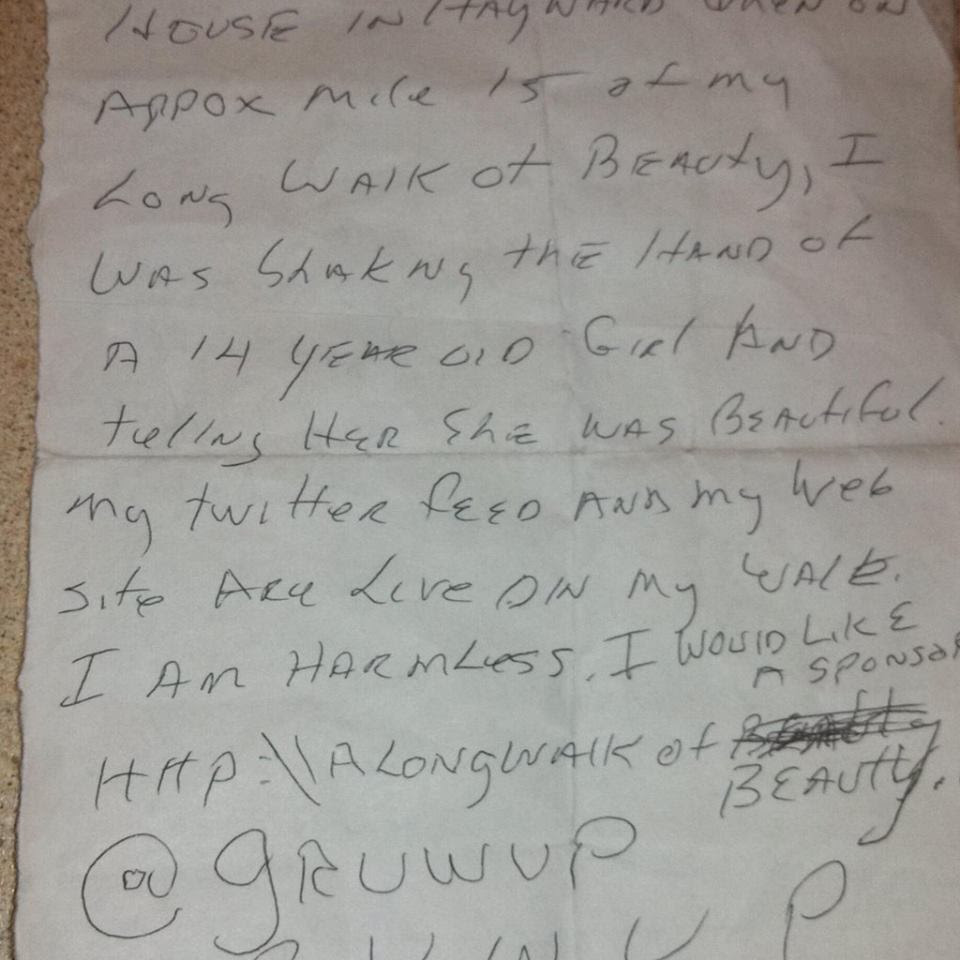 HOUSE IN HAYWARD WHEN ON
APPOX Mile 15 of my
LONG WALK Of BEAUty, I
WAS ShAkNg thE HAND Of
A 14 YEAR OlD Girl AND
telling HER ShE WAS BEAUtiful.
my twitter fEED AND my Web
site ARE LivE ON My WALK.
I AM HARMLess. I WOUlD LiKE
A SPONSOR
Http:\\ALONgWAlK of
BEAUty.
@gRUWUP